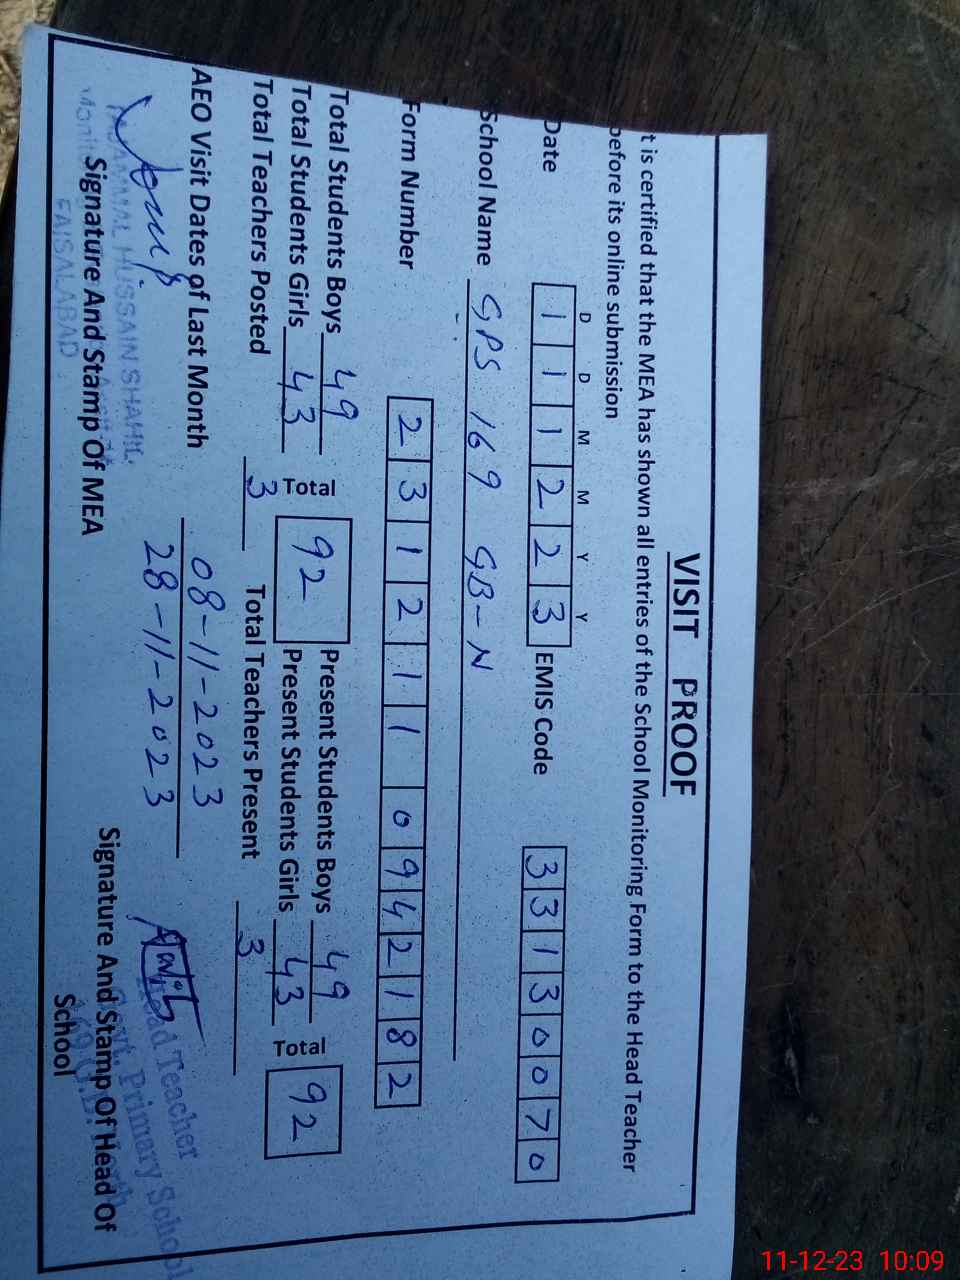 VISIT PROOF
t is certified that the MEA has shown all entries of the School Monitoring Form to the Head Teacher
before its online submission
D D M M Y Y
Date 1 1 1 2 2 3 EMIS Code 3 3 1 3 0 0 7 0
School Name GPS 169 GB-N
Form Number 2 3 1 2 1 1 0 9 4 2 1 8 2
Total Students Boys 49 Present Students Boys 49
Total Students Girls 43 Total 92 Present Students Girls 43 Total 92
Total Teachers Posted 3 Total Teachers Present 3
AEO Visit Dates of Last Month 08-11-2023
28-11-2023
HUSSAIN SHAHIL
FAISALABAD
Signature And Stamp Of MEA
Head Teacher
Govt. Primary School
Signature And Stamp Of Head Of
School
11-12-23 10:09